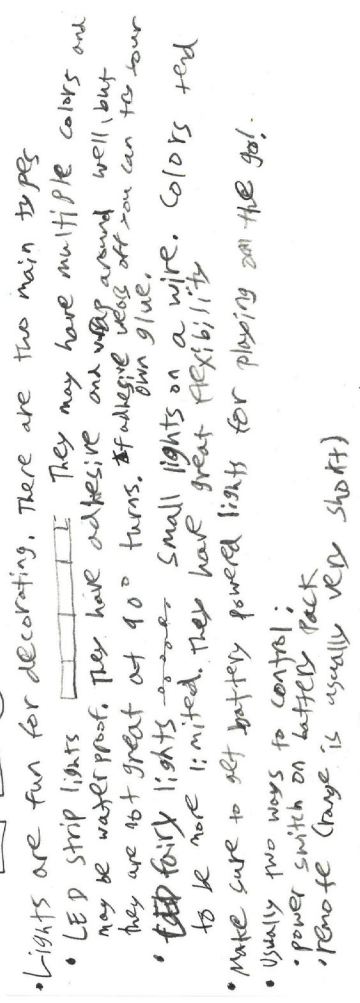 • Lights are fun for decorating. There are two main types
• LED strip lights They may have multiple colors and
may be waterproof. They have adhesive and wrap around well, but
they are not great at 90° turns. If adhesive wears off you can try your
own glue.
• fairy lights small lights on a wire. Colors tend
to be more limited. They have great flexibility
• Make sure to get battery powered lights for playing on the go!
• Usually two ways to control:
• power switch on battery pack
• remote (range is usually very short)